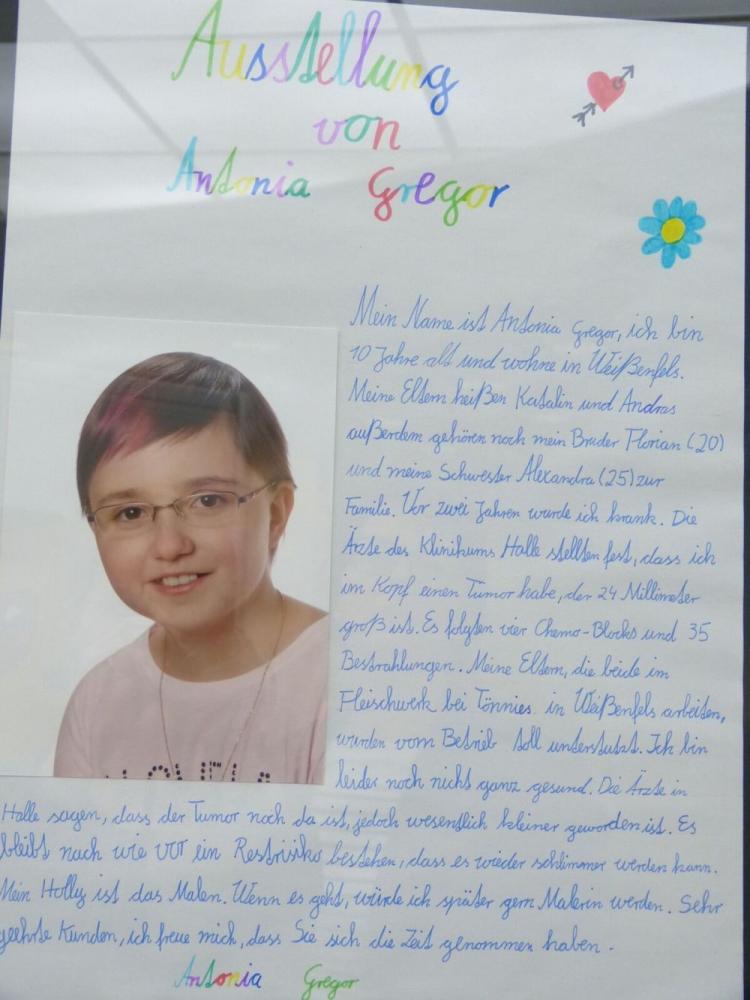 Ausstellung
von
Antonia Gregor
Mein Name ist Antonia Gregor, ich bin
10 Jahre alt und wohne in Weißenfels.
Meine Eltern heißen Katalin und Andras
außerdem gehören noch mein Bruder Florian (20)
und meine Schwester Alexandra (25) zur
Familie. Vor zwei Jahren wurde ich krank. Die
Ärzte des Klinikums Halle stellten fest, dass ich
im Kopf einen Tumor habe, der 24 Millimeter
groß ist. Es folgten vier Chemo-Blocks und 35
Bestrahlungen. Meine Eltern, die beide im
Fleischwerk bei Tönnies in Weißenfels arbeiten,
wurden vom Betrieb toll unterstützt. Ich bin
leider noch nicht ganz gesund. Die Ärzte in
Halle sagen, dass der Tumor noch da ist, jedoch wesentlich kleiner geworden ist. Es
bleibt nach wie vor ein Restrisiko bestehen, dass es wieder schlimmer werden kann.
Mein Hobby ist das Malen. Wenn es geht, würde ich später gern Malerin werden. Sehr
geehrte Kunden, ich freue mich, dass Sie sich die Zeit genommen haben.
Antonia Gregor